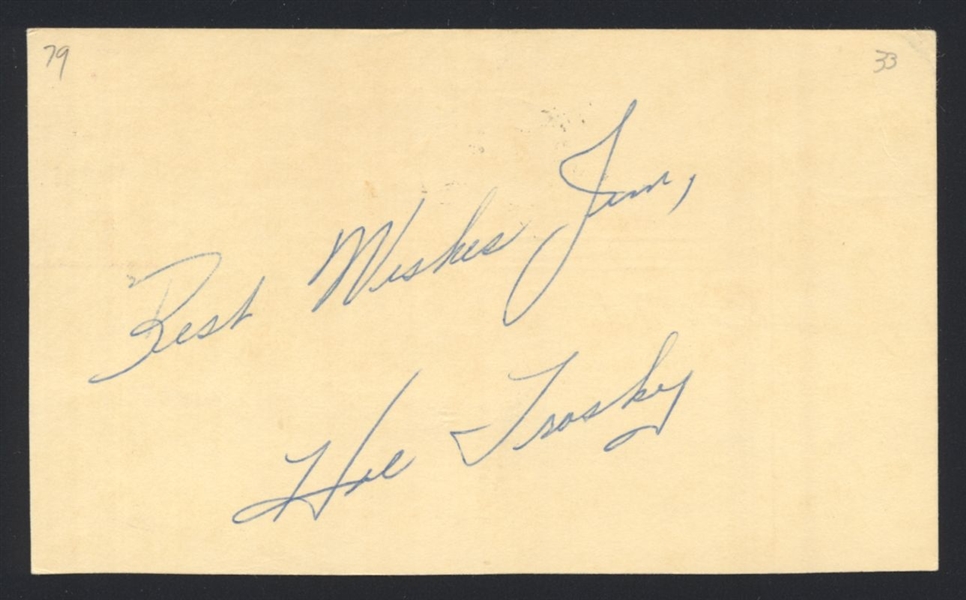 79 33
Best Wishes Jim,
Hal Trosky